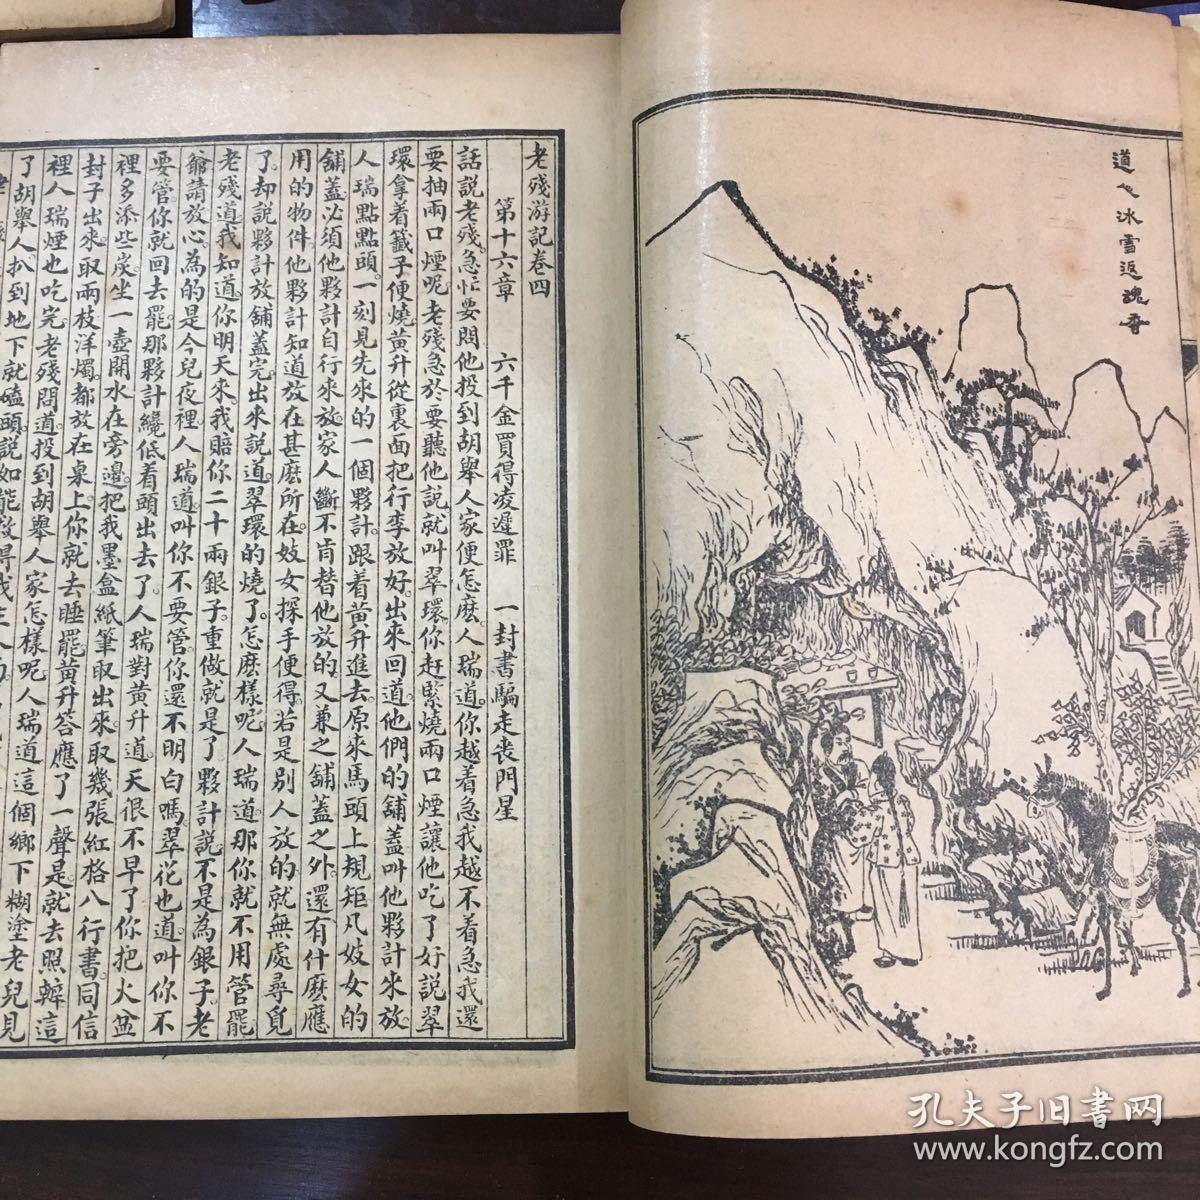 道人冰雪返魂香
老殘游記卷四
第十六章　六千金買得凌遲罪　一封書驅走喪門星
話說老殘急忙要問他投到胡舉人家便怎麽人瑞道你越着急我越不着急我還
要抽兩口煙呢老殘急於要聽他說就叫翠環你赶緊燒兩口煙讓他吃了好說翠
環拿着籤子便燒黃升從裏面把行李放好出來回道他們的舖蓋叫他夥計來放
人瑞點點頭一刻見先來的一個夥計跟着黃升進去原來馬頭上規矩凡妓女的
舖蓋必須他夥計自行來放家人斷不肯替他放的又兼之舖蓋之外還有什麽應
用的物件他夥計知道放在甚麽所在妓女探手便得若是別人放的就無處尋覓
了却說夥計放舖蓋完出來說道翠環的燒了怎麽樣呢人瑞道那你就不用管罷
老殘道我知道你明天來我賠你二十兩銀子重做就是了夥計說不是為銀子老
爺請放心為的是今兒夜裡人瑞道叫你不要管你還不明白嗎翠花也道叫你不
要管你就回去罷那夥計纔低着頭出去了人瑞對黃升道天很不早了你把火盆
裡多添些炭坐一壺開水在旁邊把我墨盒紙筆取出來取幾張紅格八行書同信
封子出來取兩枝洋燭都放在桌上你就去睡罷黃升答應了一聲是就去照辦這
裡人瑞煙也吃完老殘問道投到胡舉人家怎樣呢人瑞道這個鄉下糊塗老兒見
了胡舉人扒到地下就磕頭說如能救得我主人的
孔夫子旧书网
www.kongfz.com